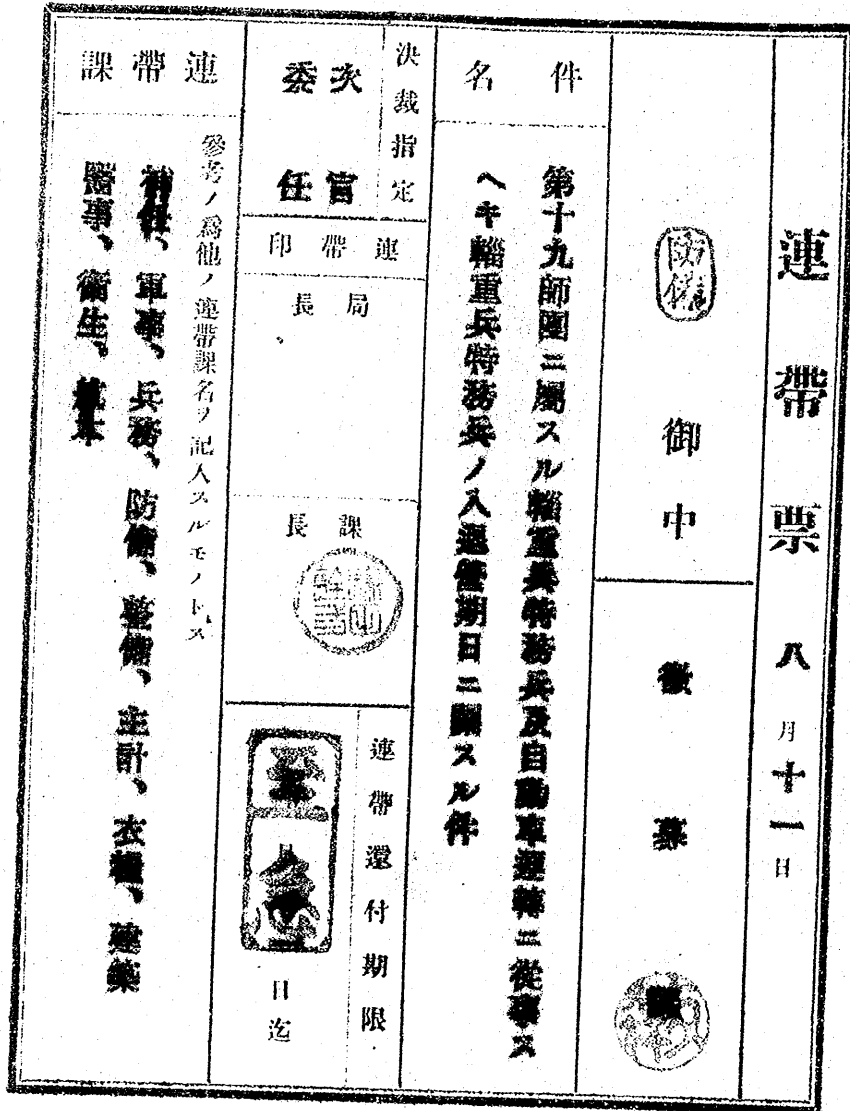 連帶票 八月十一日
防備 御中
徵募
件名
第十九師團ニ屬スル輜重兵特務兵及自動車運轉ニ從事ス
ヘキ輜重兵特務兵ノ入退營期日ニ關スル件
決裁指定
次官
委任
連帶印
局長
課長
連帶還付期限
日迄
連帶課
參考ノ爲他ノ連帶課名ヲ記入スルモノトス
補任、軍事、兵務、防備、整備、主計、衣糧、建築
醫事、衞生、